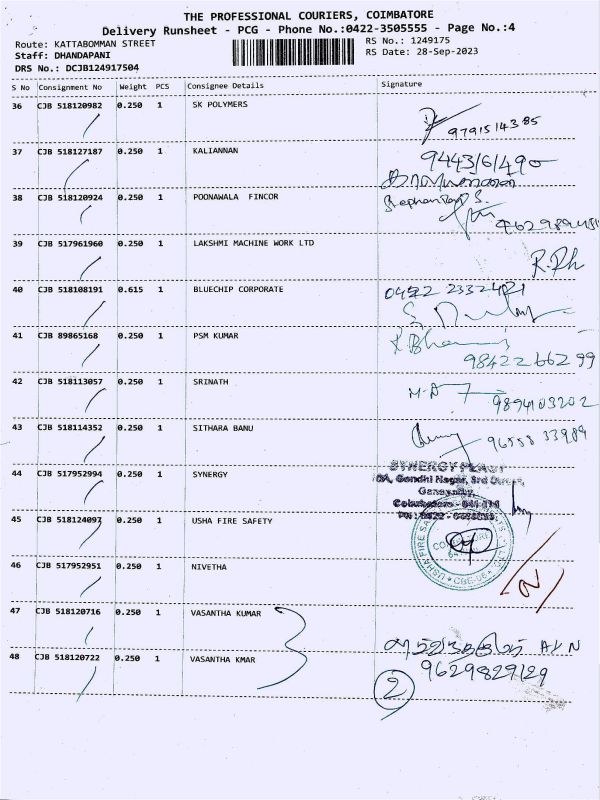 THE PROFESSIONAL COURIERS, COIMBATORE
Delivery Runsheet - PCG - Phone No.:0422-3505555 - Page No.:4
Route: KATTABOMMAN STREET
RS No.: 1249175
Staff: DHANDAPANI
RS Date: 28-Sep-2023
DRS No.: DCJB124917504
S No Consignment No Weight PCS Consignee Details Signature
36 CJB 518120982 0.250 1 SK POLYMERS
9791514385
37 CJB 518127187 0.250 1 KALIANNAN
9443161490
38 CJB 518120924 0.250 1 POONAWALA FINCOR
39 CJB 517961960 0.250 1 LAKSHMI MACHINE WORK LTD
40 CJB 518108191 0.615 1 BLUECHIP CORPORATE
0422 2332421
41 CJB 89865168 0.250 1 PSM KUMAR
98422 66299
42 CJB 518113057 0.250 1 SRINATH
9894103202
43 CJB 518114352 0.250 1 SITHARA BANU
96558 33989
44 CJB 517952994 0.250 1 SYNERGY
Gandhi Nagar,
Ganapathy,
45 CJB 518124097 0.250 1 USHA FIRE SAFETY
46 CJB 517952951 0.250 1 NIVETHA
47 CJB 518120716 0.250 1 VASANTHA KUMAR
48 CJB 518120722 0.250 1 VASANTHA KMAR
9629829129
2